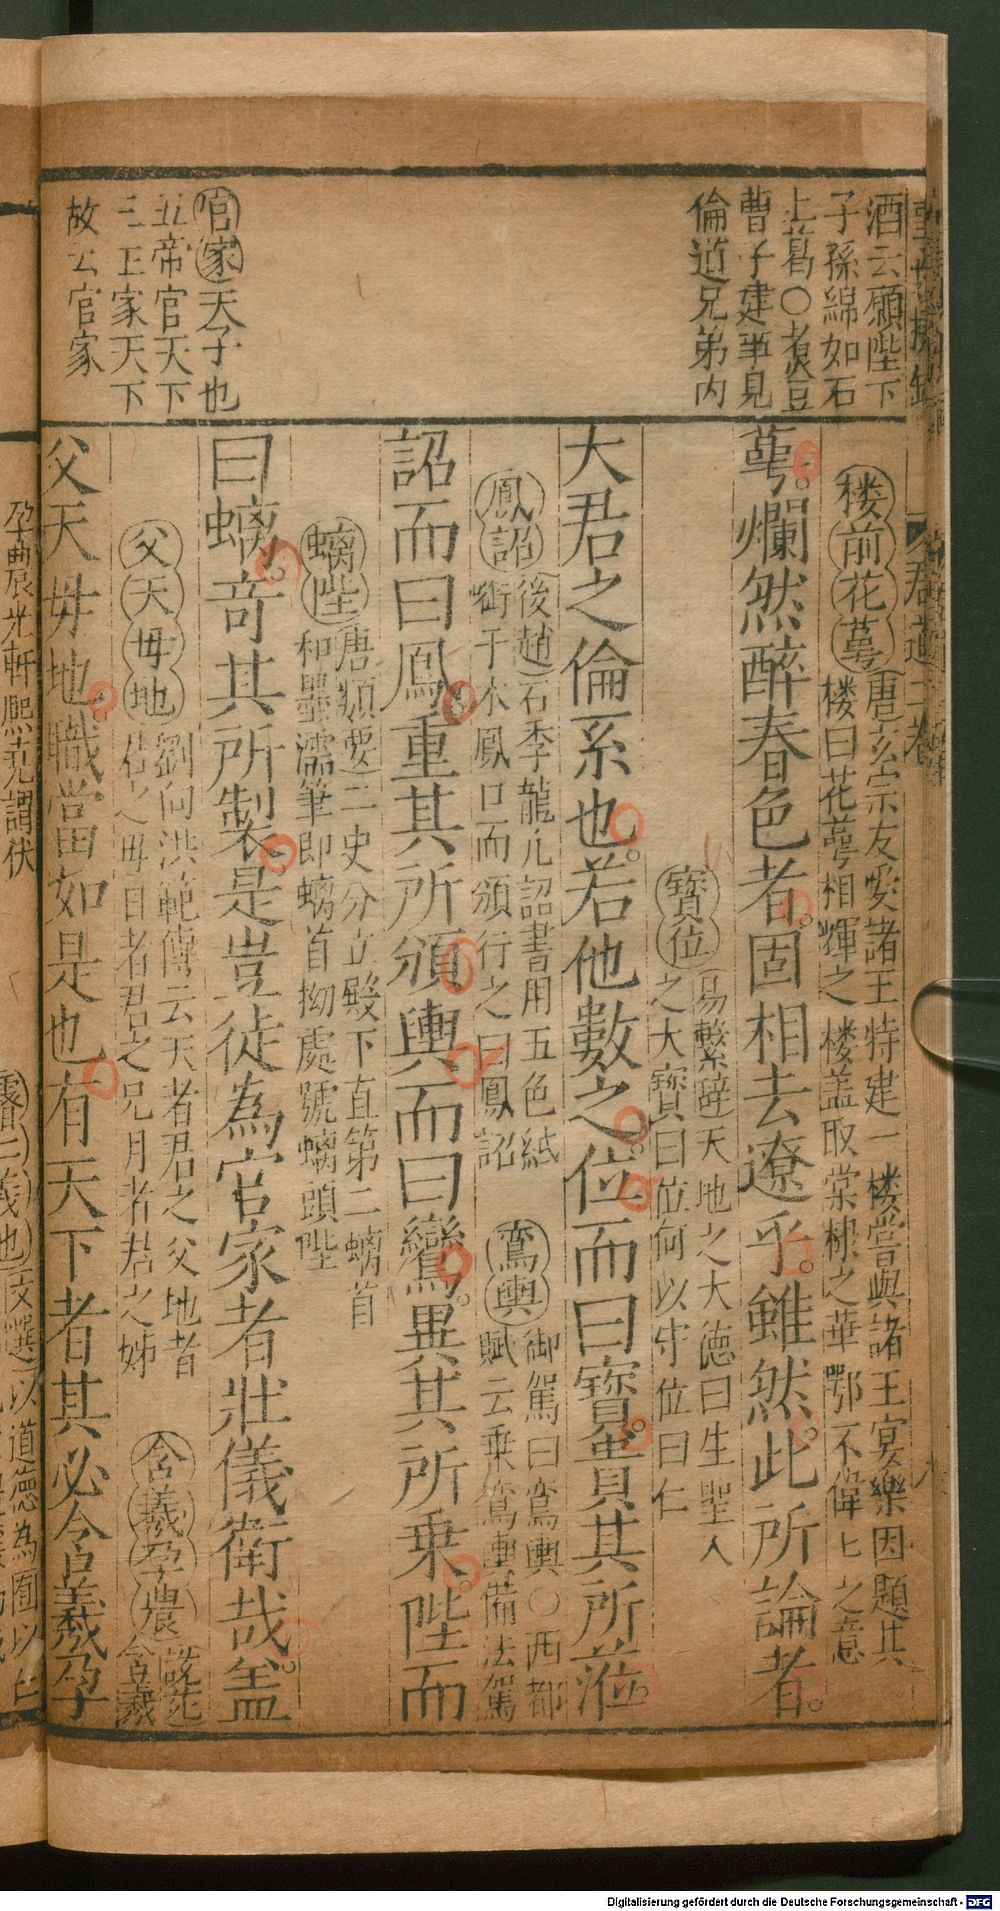 酒云願陛下
子孫綿如石
上葛〇煮豆
曹子建事見
倫道兄弟内
官家天子也
五帝官天下
三王家天下
故云官家
楼前花萼唐玄宗友愛諸王特建一楼嘗與諸王宴樂因題其
楼曰花萼相輝之楼盖取棠棣之華鄂不偉匕之意
萼爛然醉春色者固相去遼乎雖然此所論者
寳位易繫辭天地之大徳曰生聖人
之大寳曰位何以守位曰仁
大君之倫系也若他數之位而曰寳貴其所蒞
鳳詔後趙石季龍凢詔書用五色紙
啣于木鳳口而頒行之曰鳳詔
鸾輿御駕曰鸾輿〇西都
賦云乗鸾輿備法駕
詔而曰鳳重其所頒輿而曰鸞異其所乗陛而
螭陛唐類要二史分立殿下直第二螭首
和墨濡筆即螭首拗處號螭頭陛
曰螭竒其所製是豈徒為官家者壯儀衛哉盖
父天母地劉向洪範傳云天者君之父地者
君之母日者君之兄月者君之姊
含羲孕農
含羲
父天母地職當如是也有天下者其必含羲孕
孕農光軒熈堯謂伏
文選以道徳為囿以仁
Digitalisierung gefördert durch die Deutsche Forschungsgemeinschaft - DFG